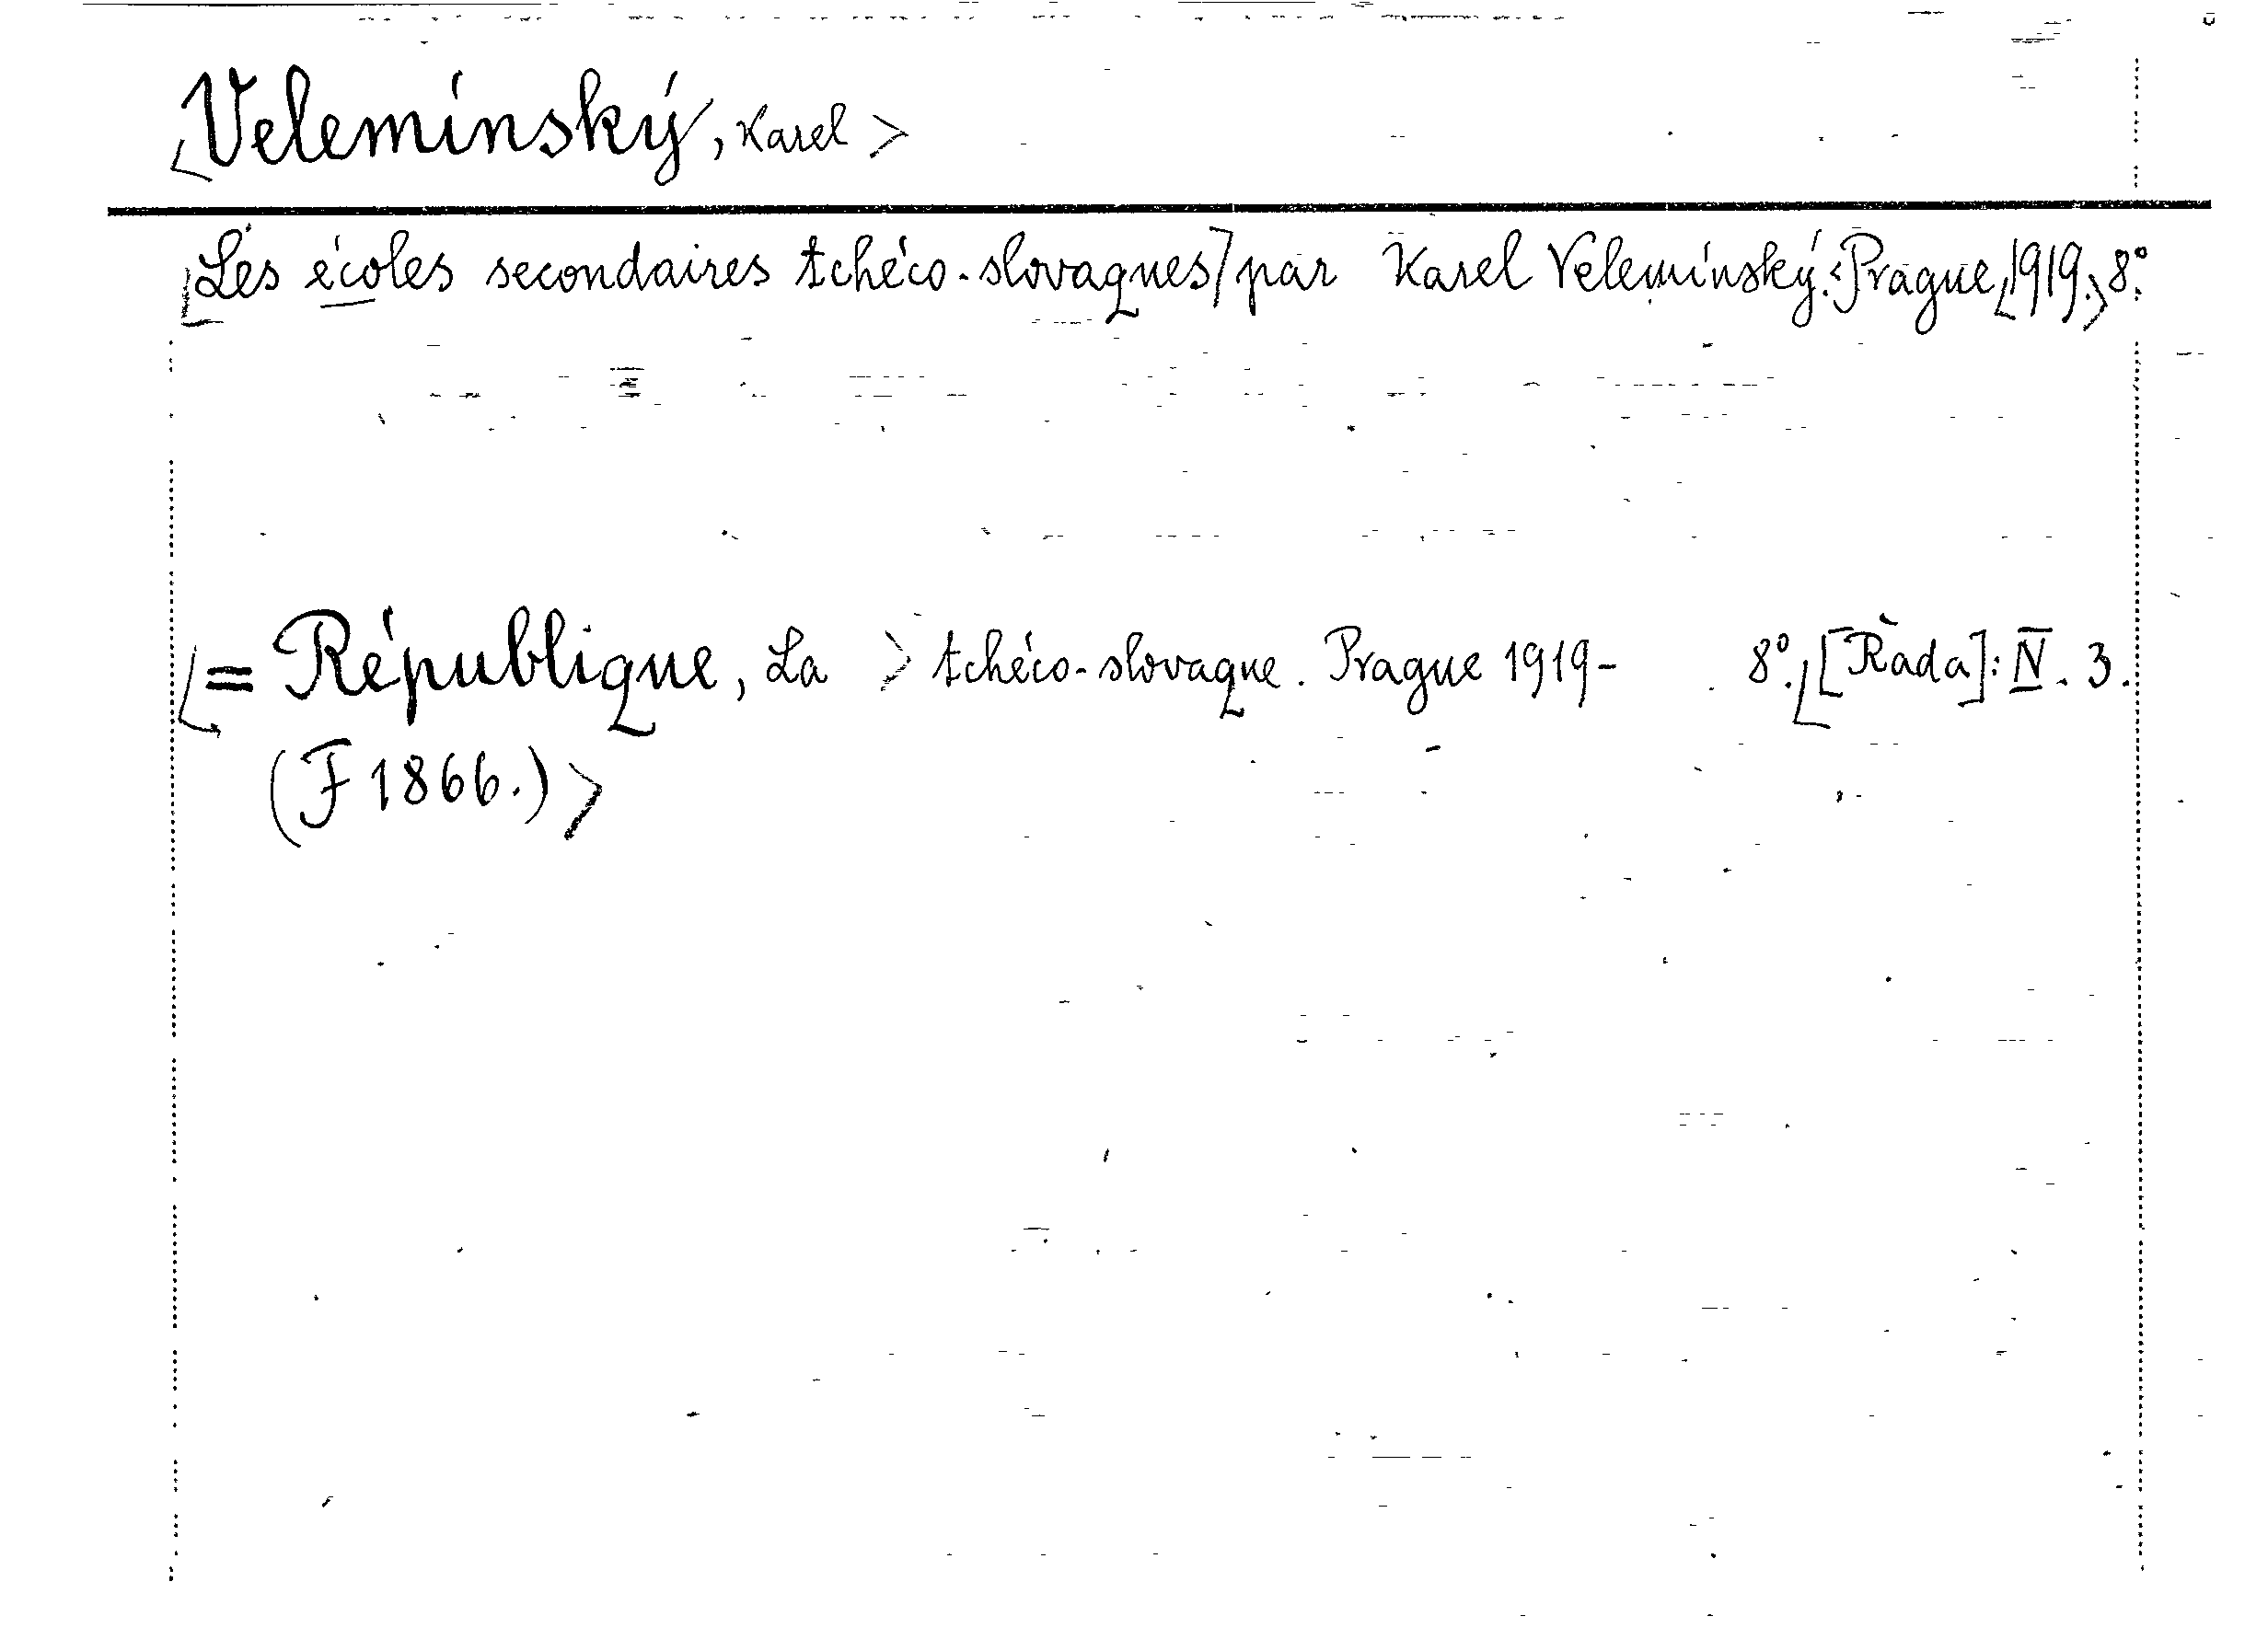 <Velemínský, Karel>
[Les écoles secondaires tchéco-slovaques] par Karel Velemínský. <Prague, <1919.> 8°.
<= République, La > tchéco-slovaque. Prague 1919- 8°. <[Řada]: IV. 3.
(F 1866.)>